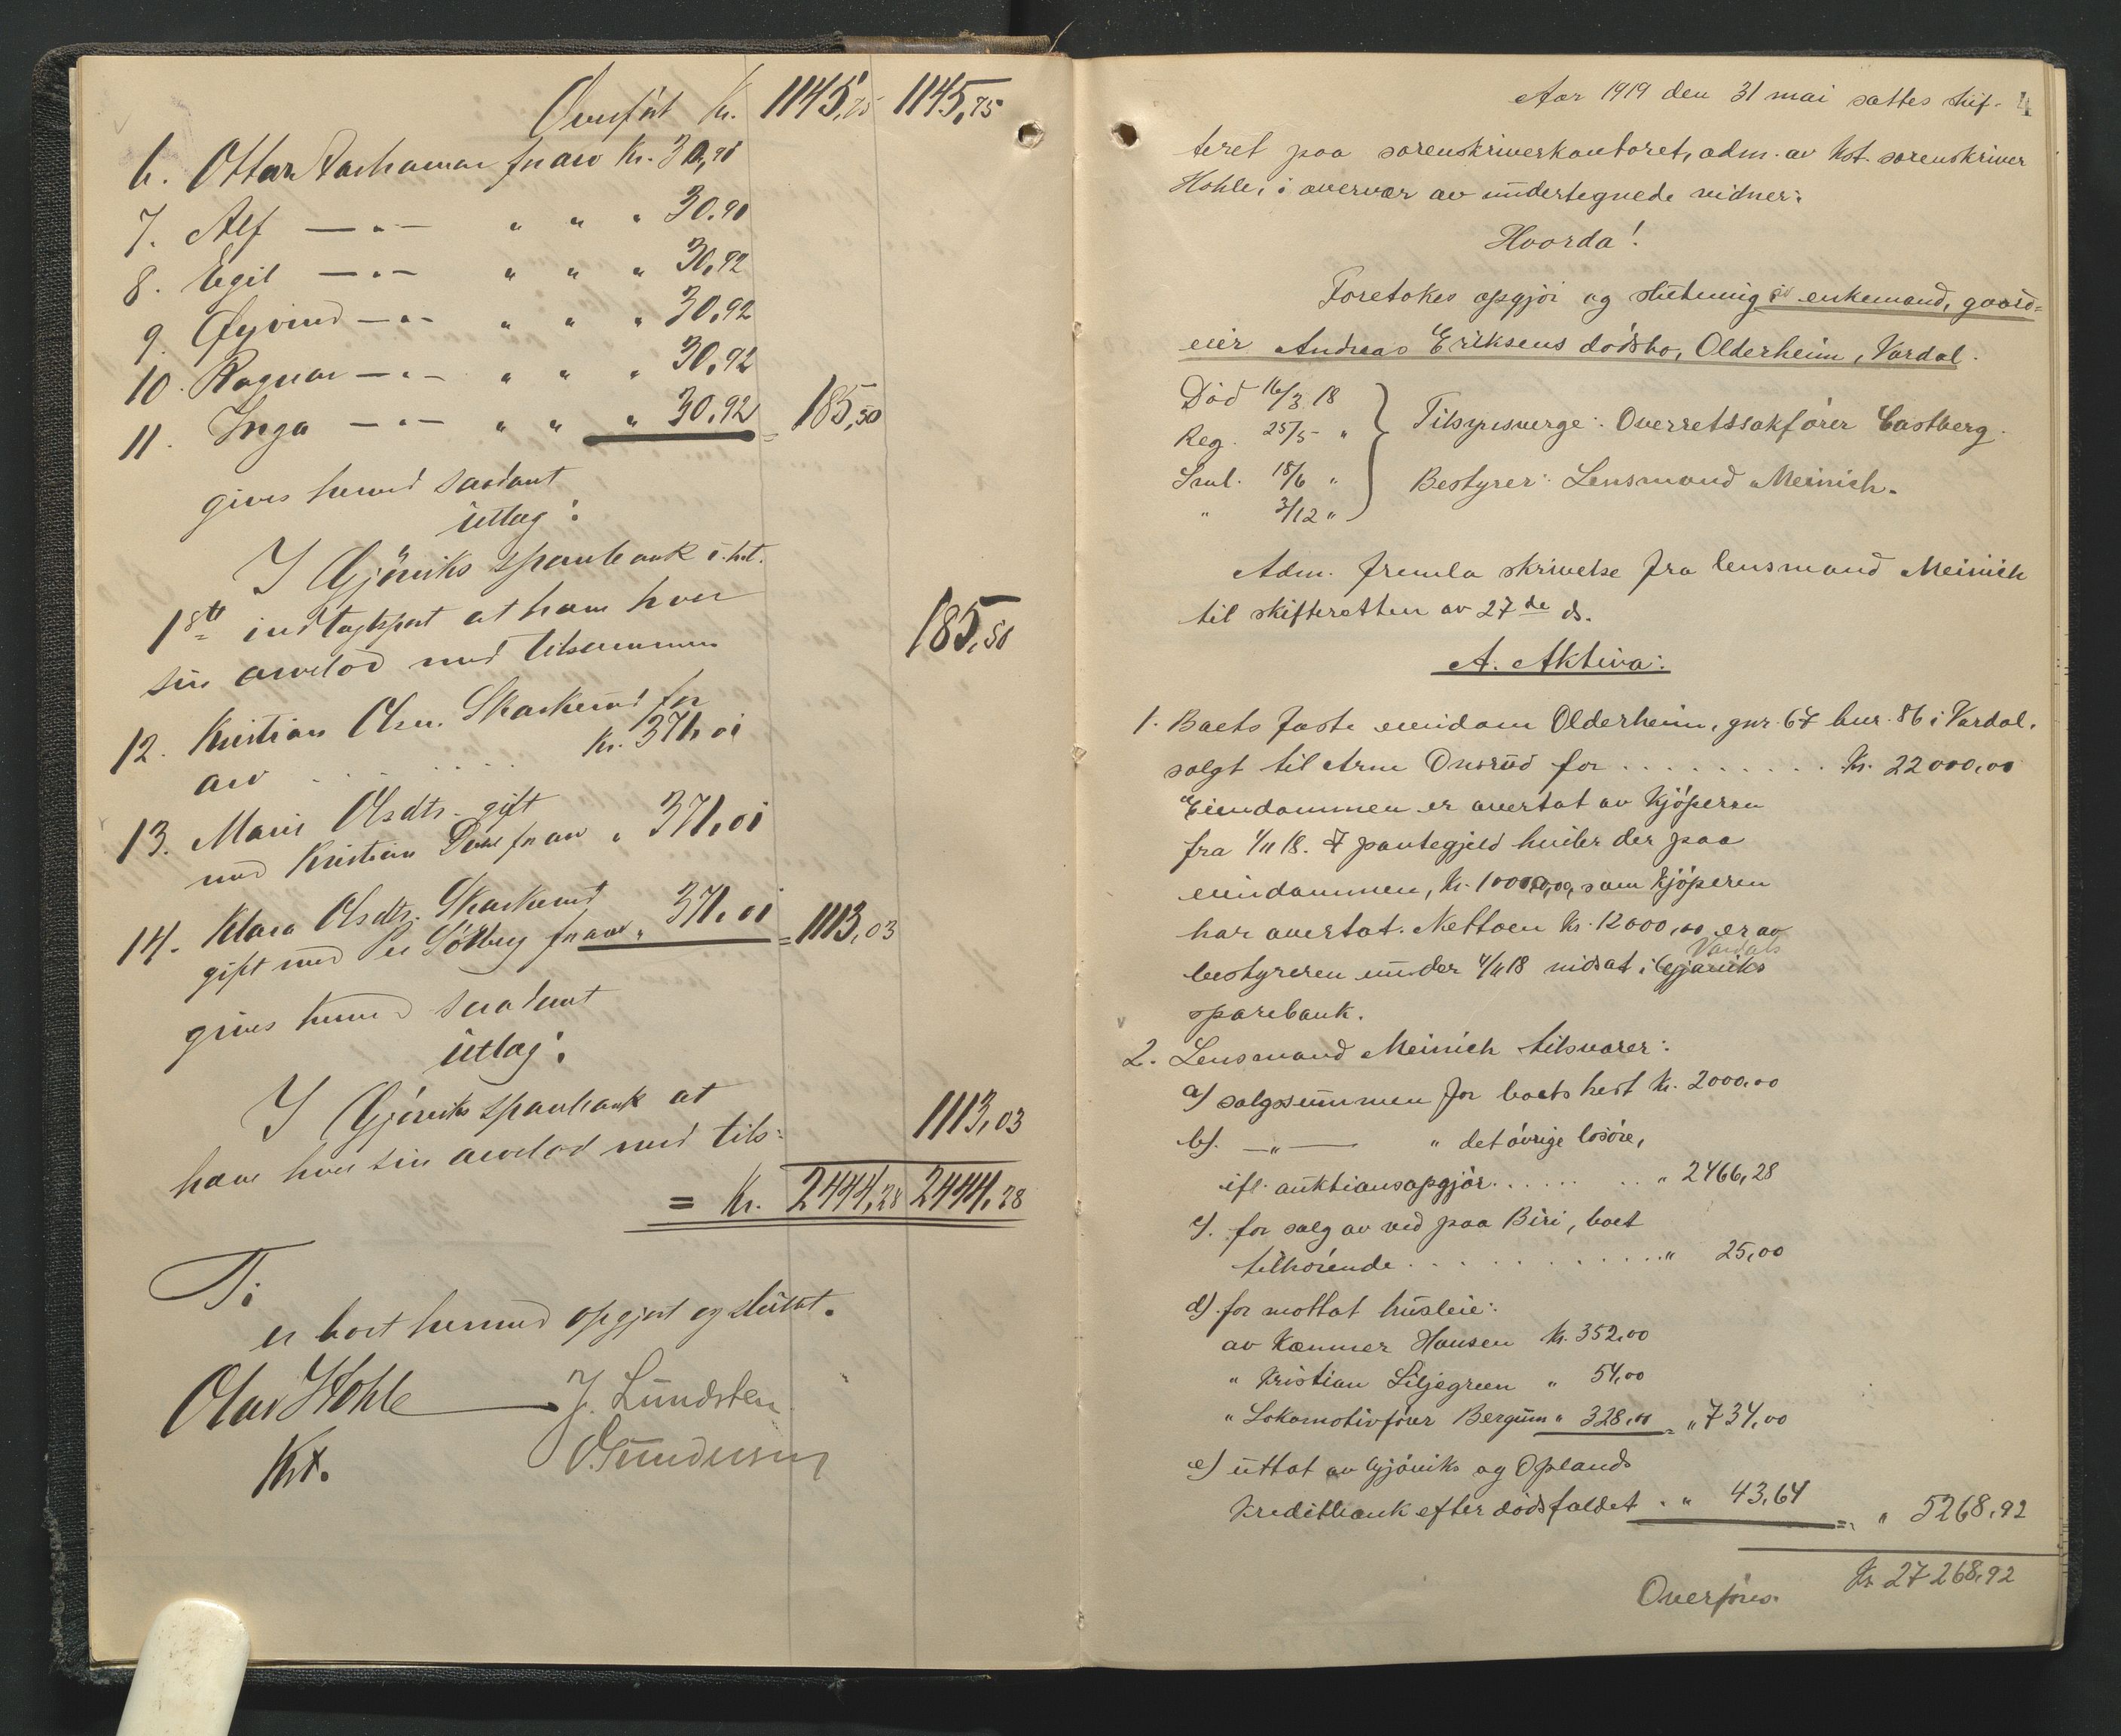 Overført Kr. 1145,75 1145,75
6. Ottar Aashamar for arv Kr. 30,91
7. Alf —"— " " " 30.91
8. Egil —"— " " " 30,92
9. Øyvind —"— " " " 30,92
10. Ragnar —"— " " " 30,92
11. Inga —"— " " " 30,92 = 185,50
gives herved saadant
utlæg:
I Gjøviks sparebank i. ht.
18de indtægtspost at have hver
sin arvelod med tilsammen 185,50
12. Kristian Olsen Skarkerud for
arv . . . . . Kr. 371,01
13. Marie Olsdtr. gift
med Kristian for arv " 371,01
14. Klara Olsdtr. Skarkerud
gift med Per Solberg for arv " 371,01 = 1113,03
gives herved saadant
utlæg:
I Gjøviks sparebank at
have hver sin arvelod med tils: 1113,03
= Kr. 2444,28 2444,28
Ti
er boet herved opgjort og sluttet.
Olav Hohle J. Lundsten
Kst. O. Gundersen
Aar 1919 den 31 mai sattes skif- 4
teret paa sorenskriverkontoret, adm. av kst. sorenskriver
Hohle, i overvær av undertegnede vidner:
Hvorda!
Foretokes opgjør og slutning i enkemand, gaard-
eier Andreas Eriksens dødsbo, Olderheim, Vardal.
Død 16/3 18
Reg. 25/5 " Tilsynsverge: Overretssakfører Castberg.
Saml. 18/6 " Bestyrer: Lensmand Meinich.
" 3/12 "
Adm. fremla skrivelse fra lensmand Meinich
til skifteretten av 27de ds.
A. Aktiva:
1. Boets faste eiendom Olderheim, gnr. 67 bnr. 86 i Vardal,
solgt til Arne Onsrud for . . . . . . . . . Kr. 22000,00
Eiendommen er overtat av kjøperen
fra 1/11 18. I pantegjeld hviler der paa
eiendommen, Kr. 10000,00, som kjøperen
har overtat. Nettoen Kr. 12000,00 er av
Vardals
bestyreren under 4/11 18 indsat i Gjøviks
sparebank.
2. Lensmand Meinich tilsvarer:
a) salgssummen for boets hest Kr. 2000,00
b). —"— " det øvrige løsøre,
ifl. auktionsopgjør . . . . . . . . " 2466,28
c). for salg av ved paa Biri, boet
tilhørende . . . . . . . . . . . . " 25,00
d). for mottat husleie:
av Kæmner Hansen Kr. 352,00
" Kristian Liljegreen " 54,00
" Lokomotivfører Bergum " 328,00 = " 734,00
e) uttat av Gjøviks og Oplands
Kreditbank efter dødsfaldet . " 43,64 = " 5268,92
Kr 27268,92
Overføres.